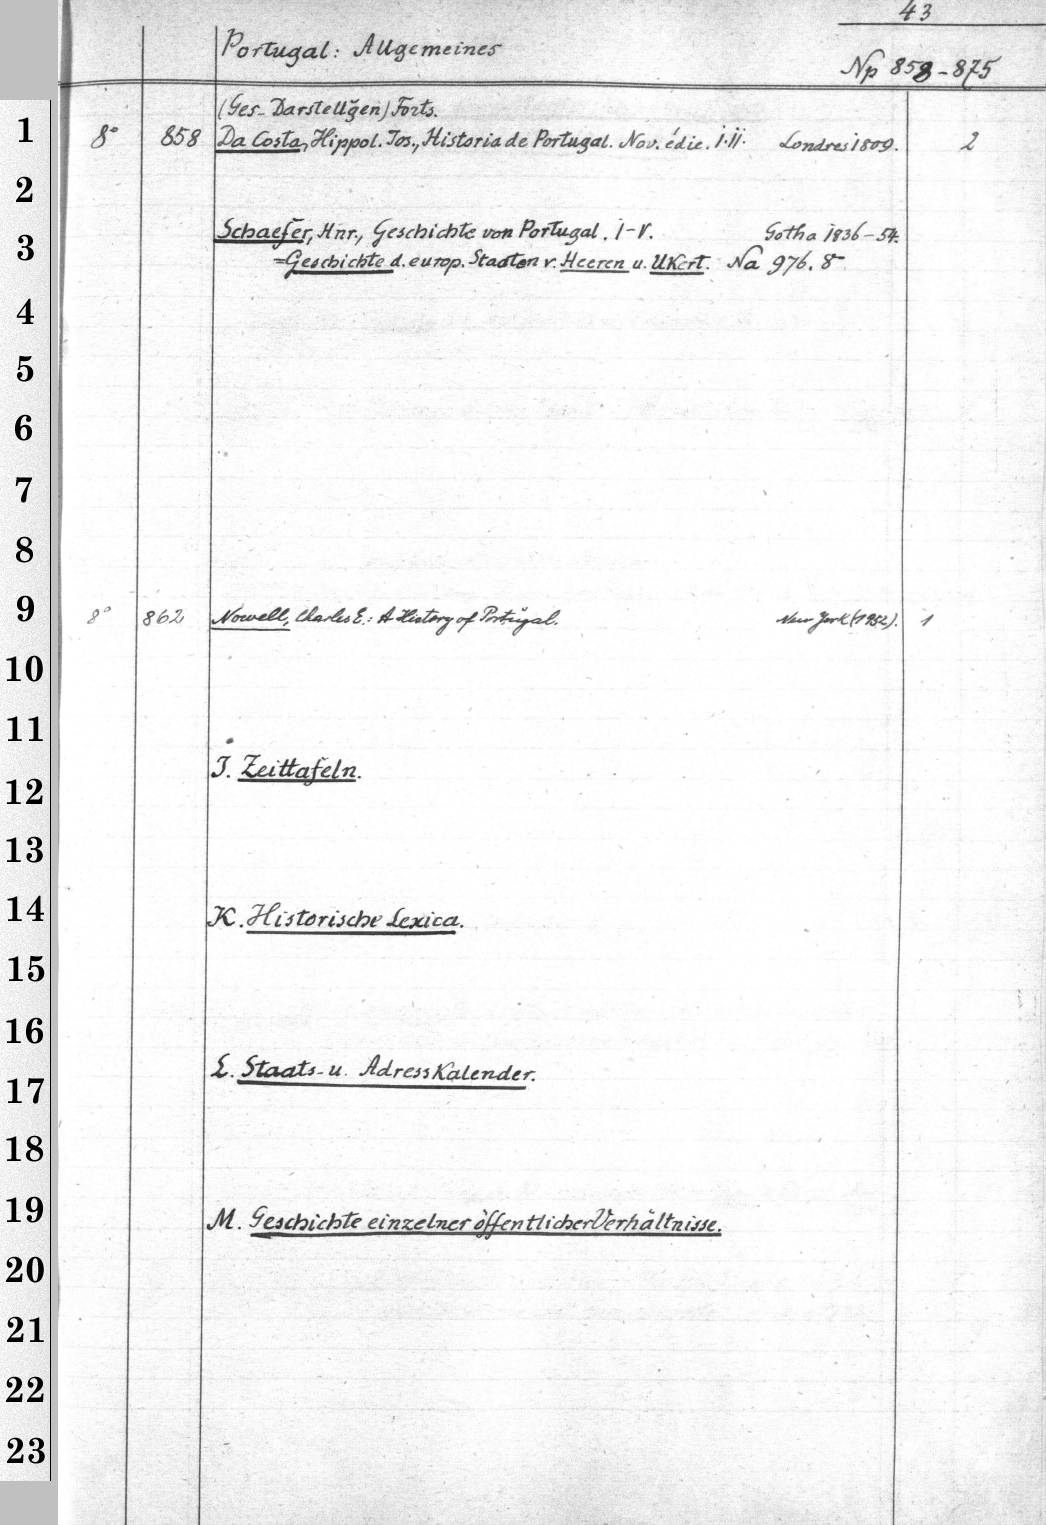 43
Portugal: Allgemeines
Np 858-875
(Ges. Darstellg̃en) Forts.
1 8° 858 Da Costa, Hippol. Jos., Historia de Portugal. Nov. édic. I.II. Londres 1809. 2
2
3 Schaefer, Hnr., Geschichte von Portugal. I-V. Gotha 1836-54.
=Geschichte d. europ. Staaten v. Heeren u. Ukert. Na 976. 8°
4
5
6
7
8
9 8° 862 Nowell, Charles E.: A History of Portugal. New York (1952). 1
10
11
12 J. Zeittafeln.
13
14 K. Historische Lexica.
15
16
17 L. Staats- u. Adresskalender.
18
19 M. Geschichte einzelner öffentlicher Verhältnisse.
20
21
22
23